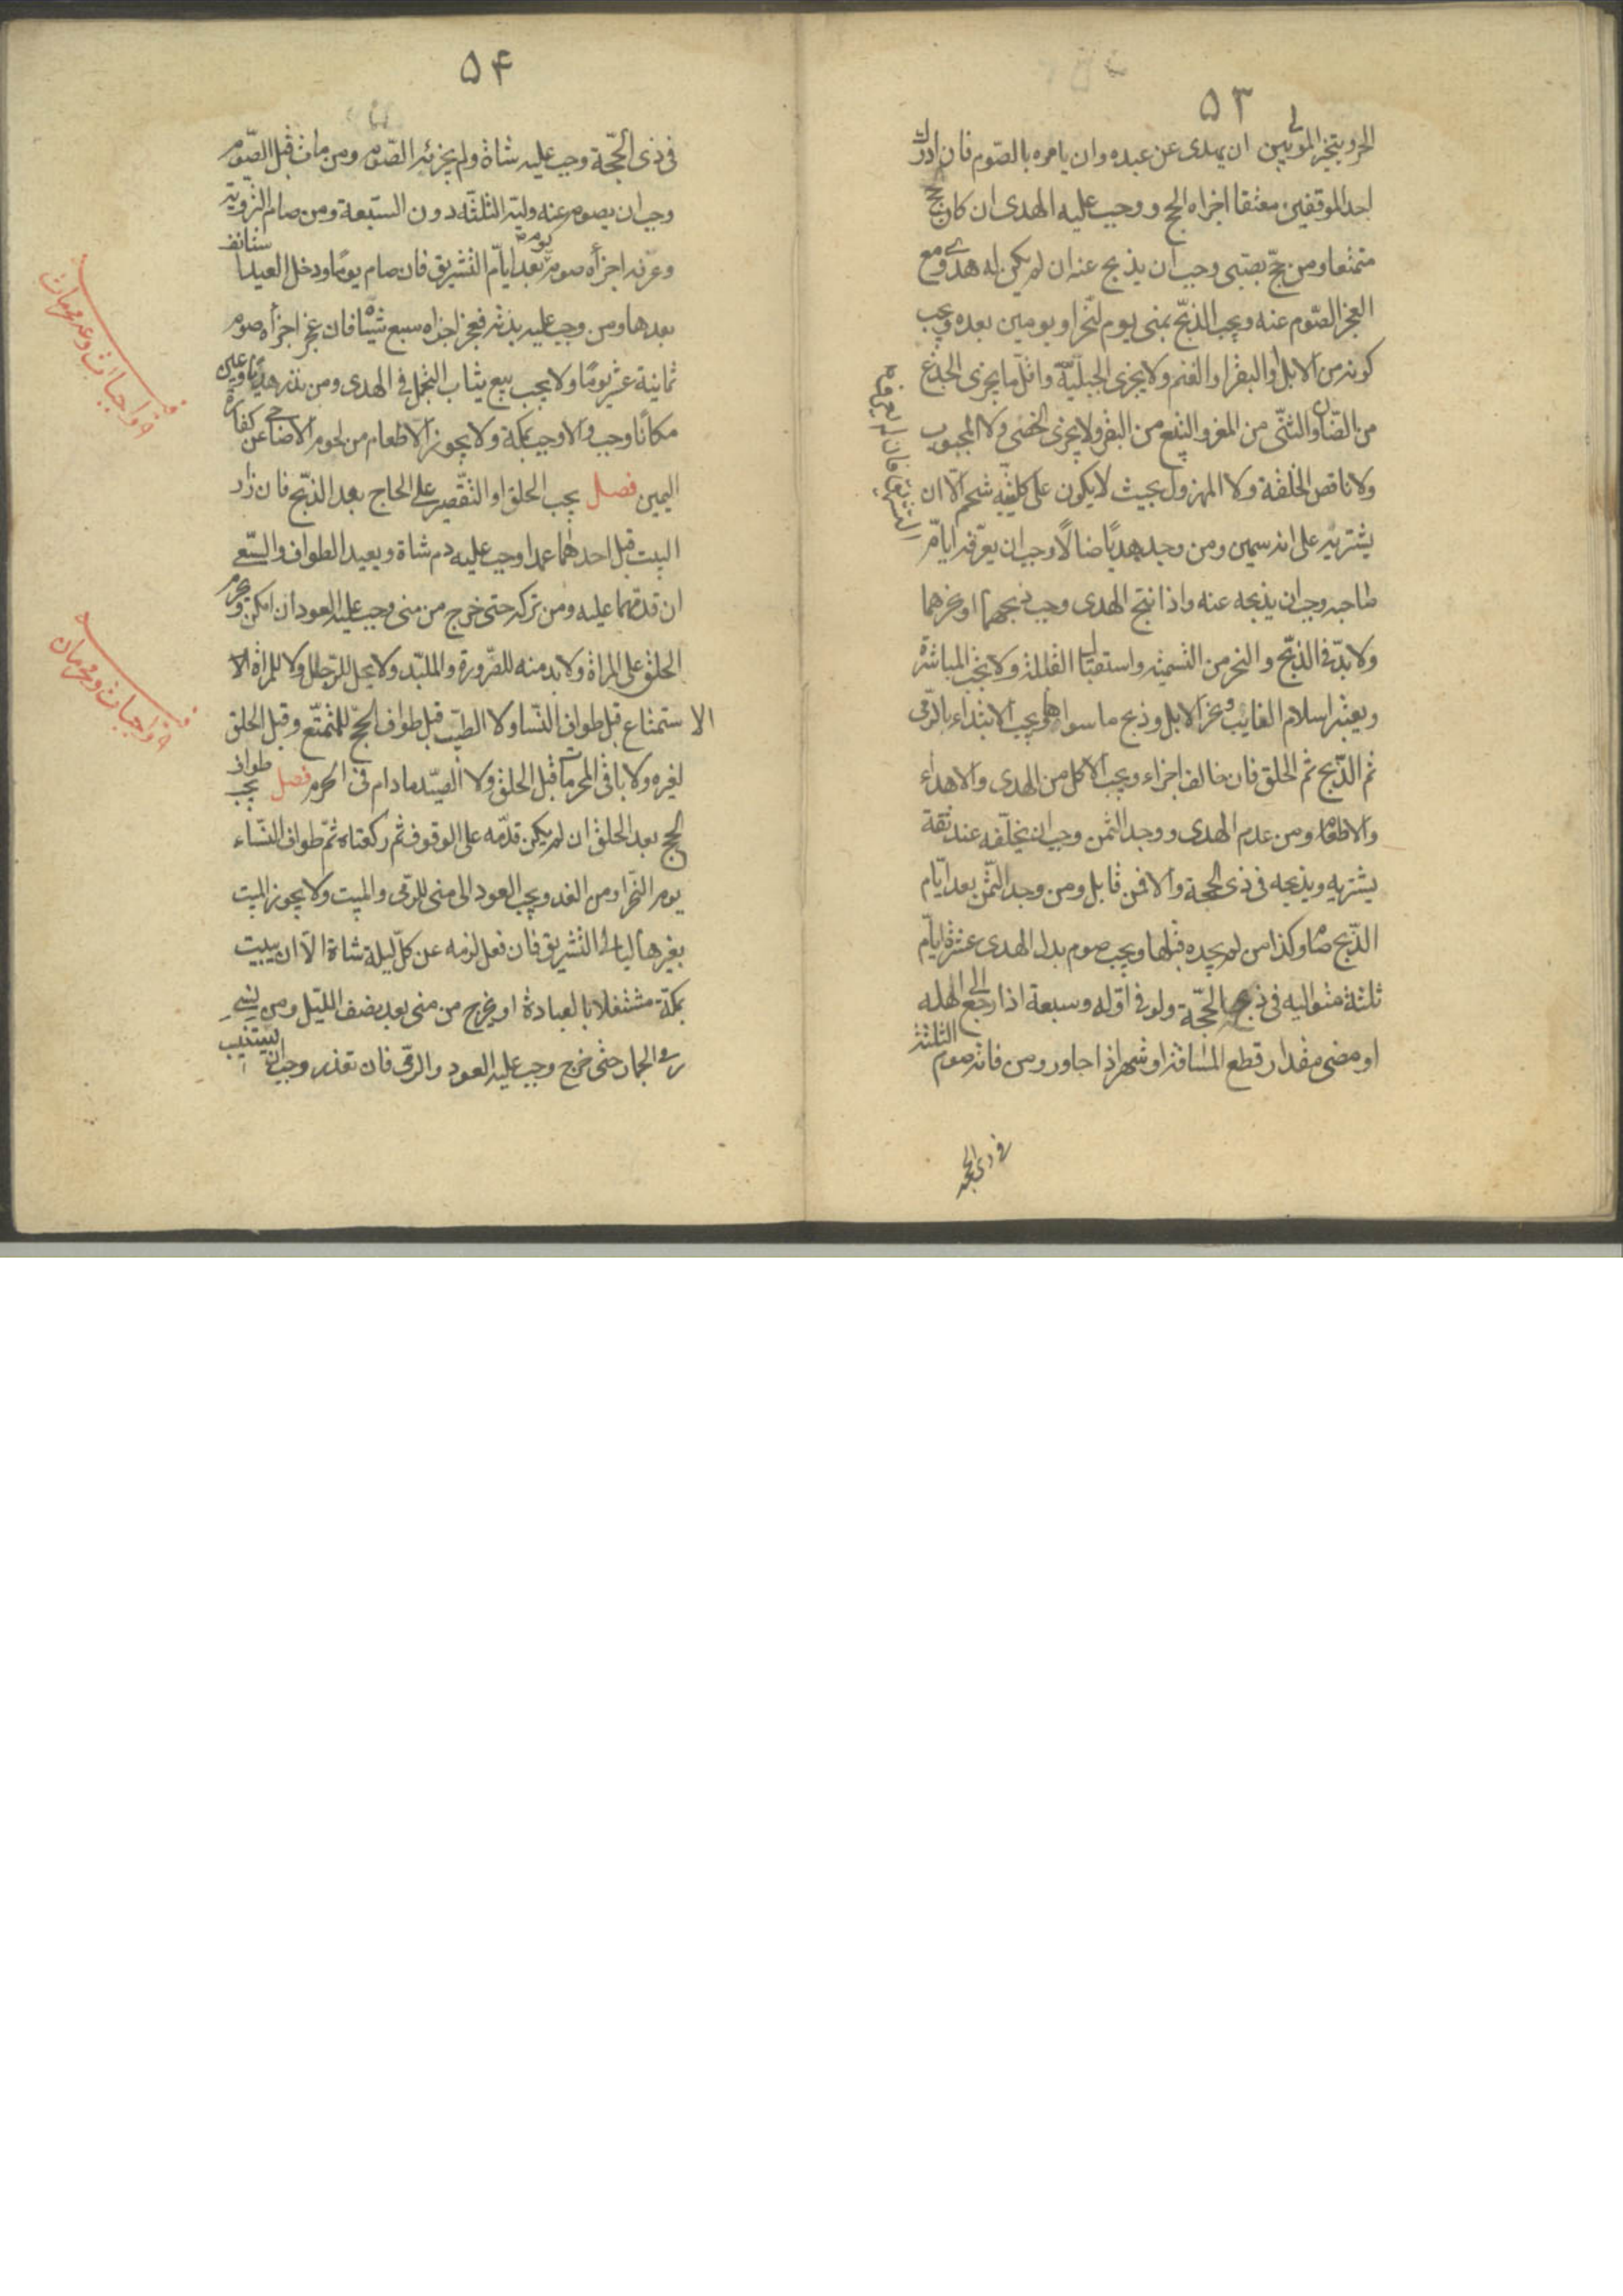 ۵۳
الحر ويتخير المولى بين ان يهدى عن عبده وان يامره بالصّوم فان ادرك
احد الموقفين معتقا اجزاه الحج ووجب عليه الهدى ان كان حج
متمتعا ومن حجّ بصبّى وجب ان يذبح عنه ان لم يكن له هدى ومع
العجز الصّوم عنه ويجب الذبّح بمنى يوم النّحر او يومين بعده ويجب
كونه من الابل او البقر او الغنم ولا يجزى الجبليّة واقلّ ما يجزى الجذع
من الضّان والثنّى من المعز والتبيع من البقر ولا يجزى الخصى ولا المجبوب
ولا ناقص الخلقة ولا المهزول بحيث لا يكون على كليتيه شحم الّا ان
يشتريه على انه سمين ومن وجد هديًا ضالًا وجب ان يعرّفه ايّام
التشريق فان لم يعرفه
صاحبه وجب ان يذبحه عنه واذا نتج الهدى وجب ذبحهما او نحرهما
ولا بدّ فى الذبّح والنحر من التسميه واستقبال القبلة ولا يجب المباشرة
ويعتبر اسلام النايب ونحر الابل وذبح ما سواها ويجب الابتداء بالرّمى
ثم الذّبح ثم الحلق فان خالف اجزاء ويجب الاكل من الهدى والاهداء
والاطعام ومن عدم الهدى ووجد الثمن وجب ان يخلّفه عند ثقة
يشتريه ويذبحه فى ذى الحجة والا فمن قابل ومن وجد الثّمن بعد ايّام
الذّبح صام وكذا من لم يجده قبلها ويجب صوم بدل الهدى عشرة ايّام
ثلثة متواليه فى ذى الحجّة ولو فى اوّله وسبعة اذا رجع الى اهله
او مضى مقدار قطع المسافة او شهر اذا جاور ومن فاته صوم الثلثة
فى ذى الحجة
۵۴
فى ذى الحجّة وجب عليه شاة ولم يجزئه الصّوم ومن مات قبل الصّوم
وجب ان يصوم عنه وليّه الثلثه دون السّبعة ومن صام التروية
وعرفه اجزأه صوم يوم بعد ايّام التّشريق فان صام يومًا ودخل العيد استانف
بعدها ومن وجب عليه بدنة فعجز اجزاه سبع شياه فان عجز اجزأه صوم
ثمانية عشر يومًا ولا يجب بيع ثياب التجمل فى الهدى ومن نذر هديًا وعين
مكانًا وجب والا وجب بمكة ولا يجوز الاطعام من لحوم الاضاحى عن كفارة
اليمين فصل يجب الحلق او التّقصير على الحاج بعد الذّبح فان زار
البيت قبل احدهما عمدا وجب عليه دم شاة ويعيد الطواف والسّعى
ان قدمهما عليه ومن تركه حتى خرج من منى وجب عليه العود ان امكن ويحرم
الحلق على المراة ولا بد منه للصّرورة والملبّد ولا يحل للرّجل ولا للمراة الا
الاستمتاع قبل طواف النّسا ولا الطيب قبل طواف الحجّ للمتمتّع وقبل الحلق
لغيره ولا باقى المحرمات قبل الحلق ولا الصّيد ما دام فى الحرم فصل يجب طواف
الحج بعد الحلق ان لم يكن قدّمه على الوقوف ثم ركعتاه ثمّ طواف النّساء
يوم النّحر او من الغد ويجب العود الى منى للرّمى والمبيت ولا يجوز المبيت
بغيرها ليالى التّشريق فان فعل لزمه عن كلّ ليلة شاة الّا ان يبيت
بمكّة مشتغلا بالعبادة او يخرج من منى بعد نصف اللّيل ومن نسى
رمى الجمار حتّى خرج وجب عليه العود والرّمى فان تعذر وجب ان يستنيب